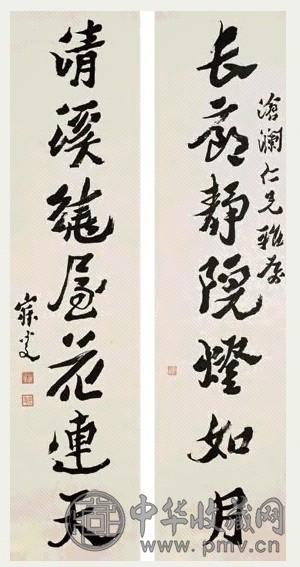 長廊靜院燈如月
滄瀾仁兄雅
清溪繞屋花連天
寐叟
中华收藏网
www.pmv.cn